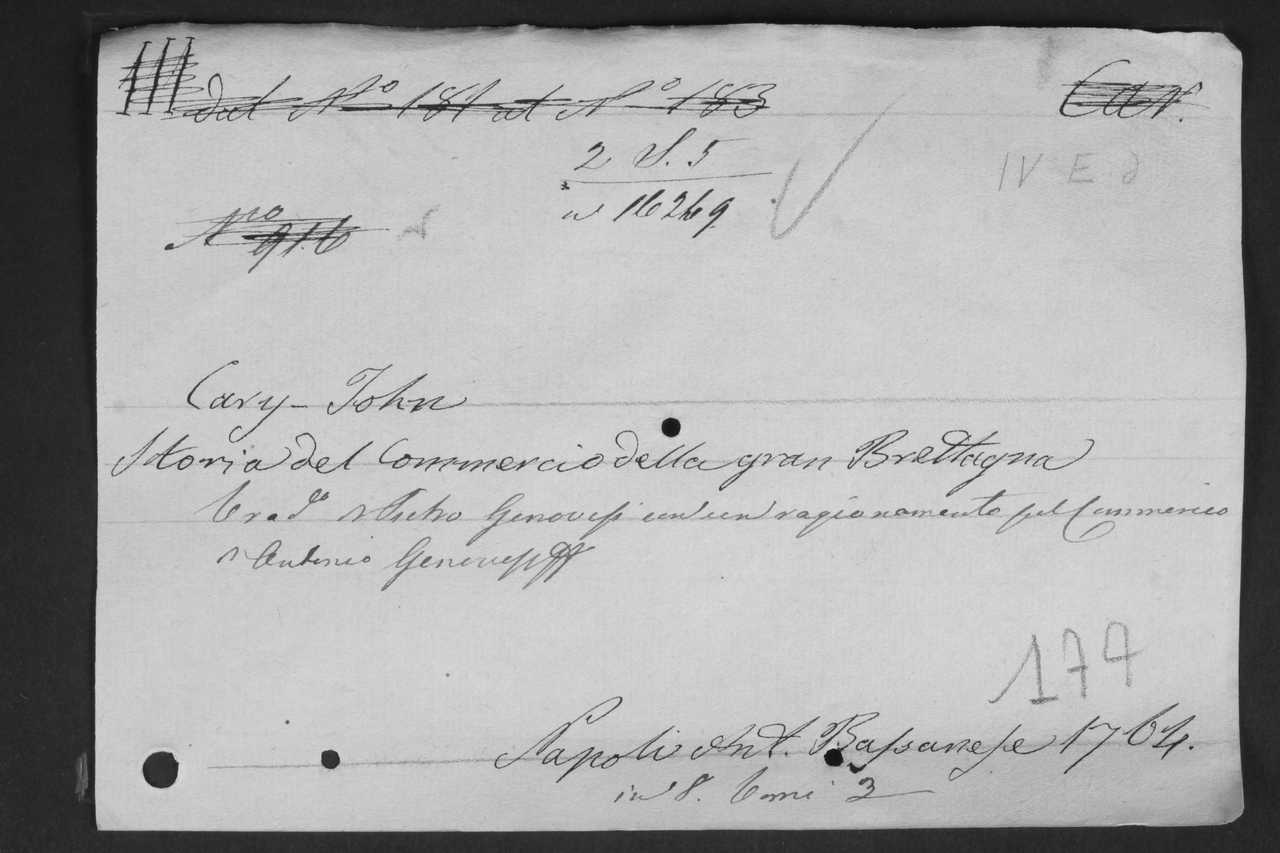 III dal Nº 181 al Nº 183 Car.
2 S. 5
IV E d
in 16249
Nro 916
Cary - John
Storia del Commercio della gran Brettagna
Trad.º d Pietro Genovesi con un ragionamento sul Commercio
d Antonio Genovesi
177
Napoli Ant. Bassanese 1764.
in 8. Tomi 3